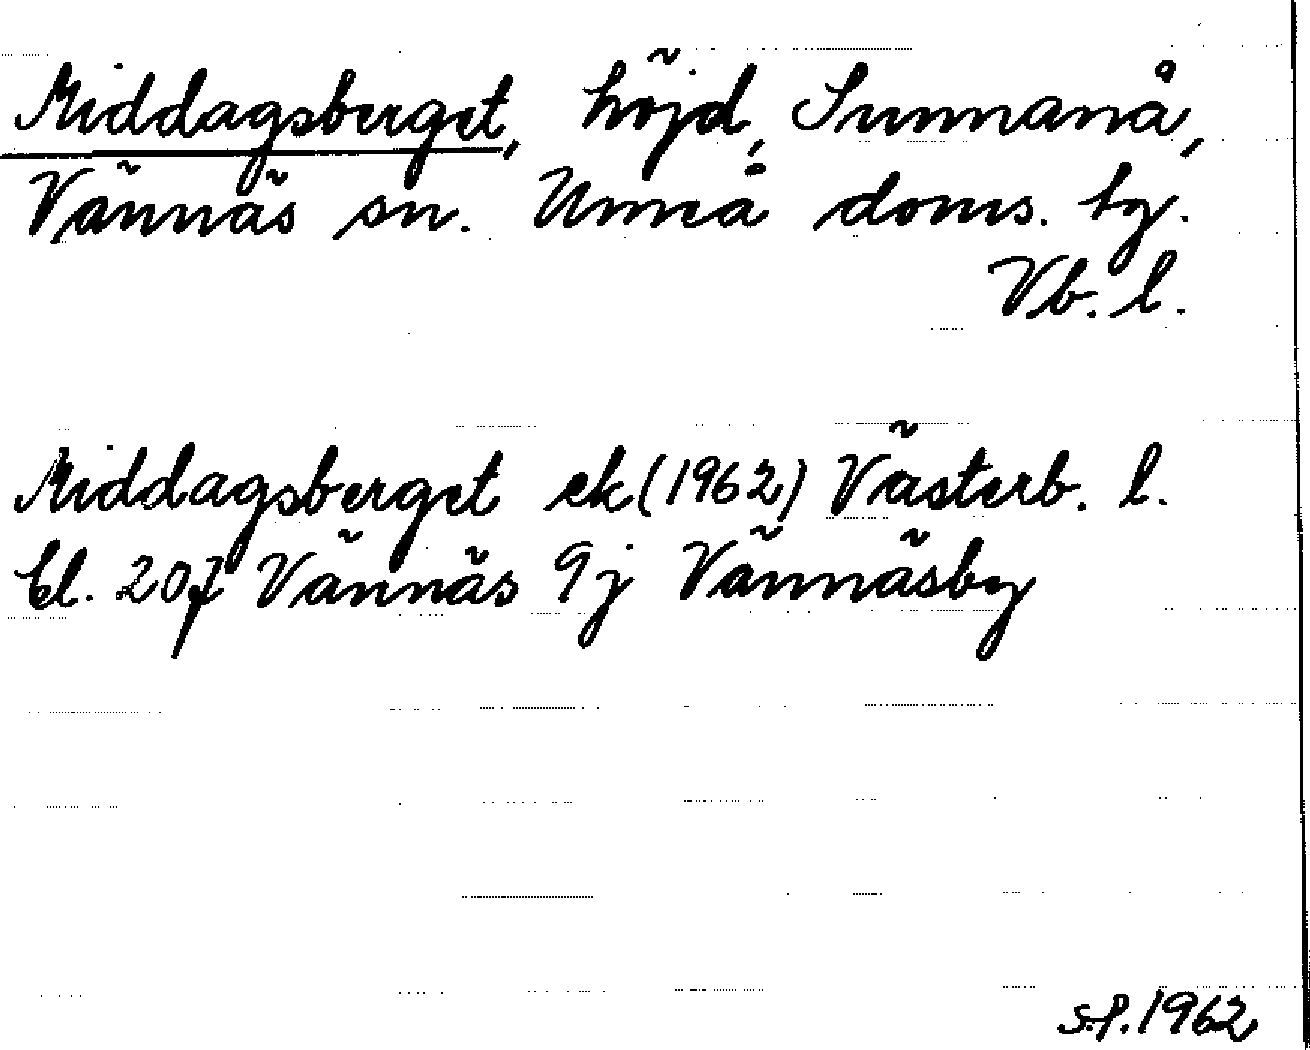 Middagsberget, höjd, Sunnanå,
Vännäs sn. Umeå doms. tg.
Vb. l.
Middagsberget ek (1962) Västerb. l.
bl. 20J Vännäs 9j Vännäsby
s.f. 1962